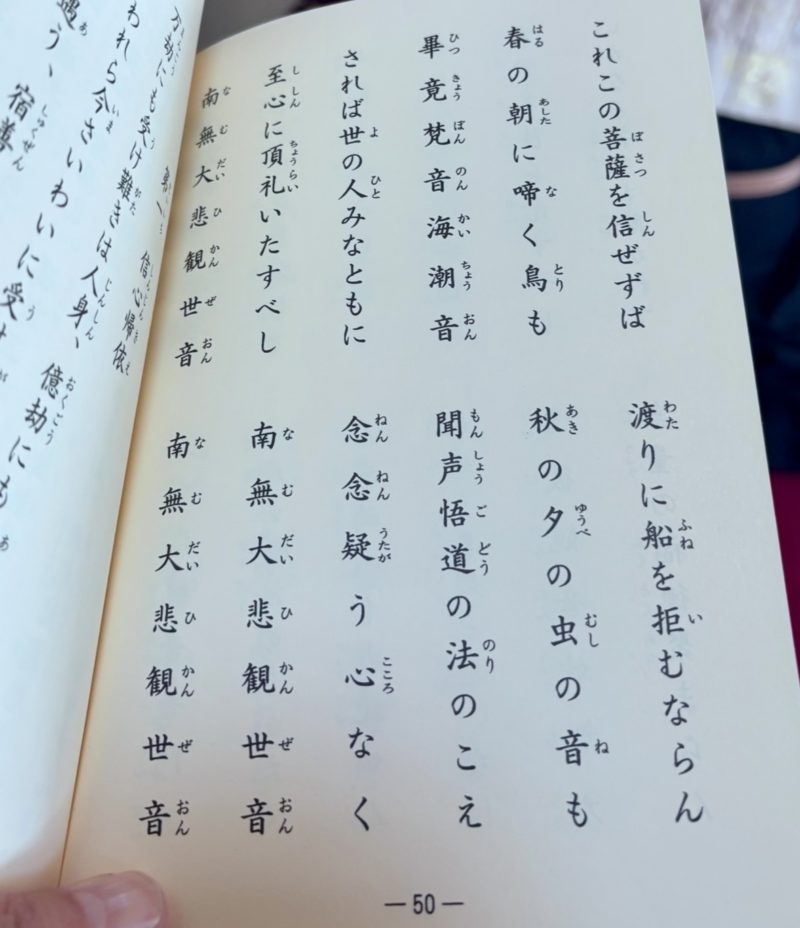 これこの菩薩を信ぜずば 渡りに船を拒むならん
春の朝に啼く鳥も 秋の夕の虫の音も
畢竟梵音海潮音 聞声悟道の法のこえ
されば世の人みなともに 念念疑う心なく
至心に頂礼いたすべし 南無大悲観世音
南無大悲観世音 南無大悲観世音
―50―
信心帰依
万劫にも受け難きは人身、億劫にも
われら今さいわいに受け
遇う、宿善